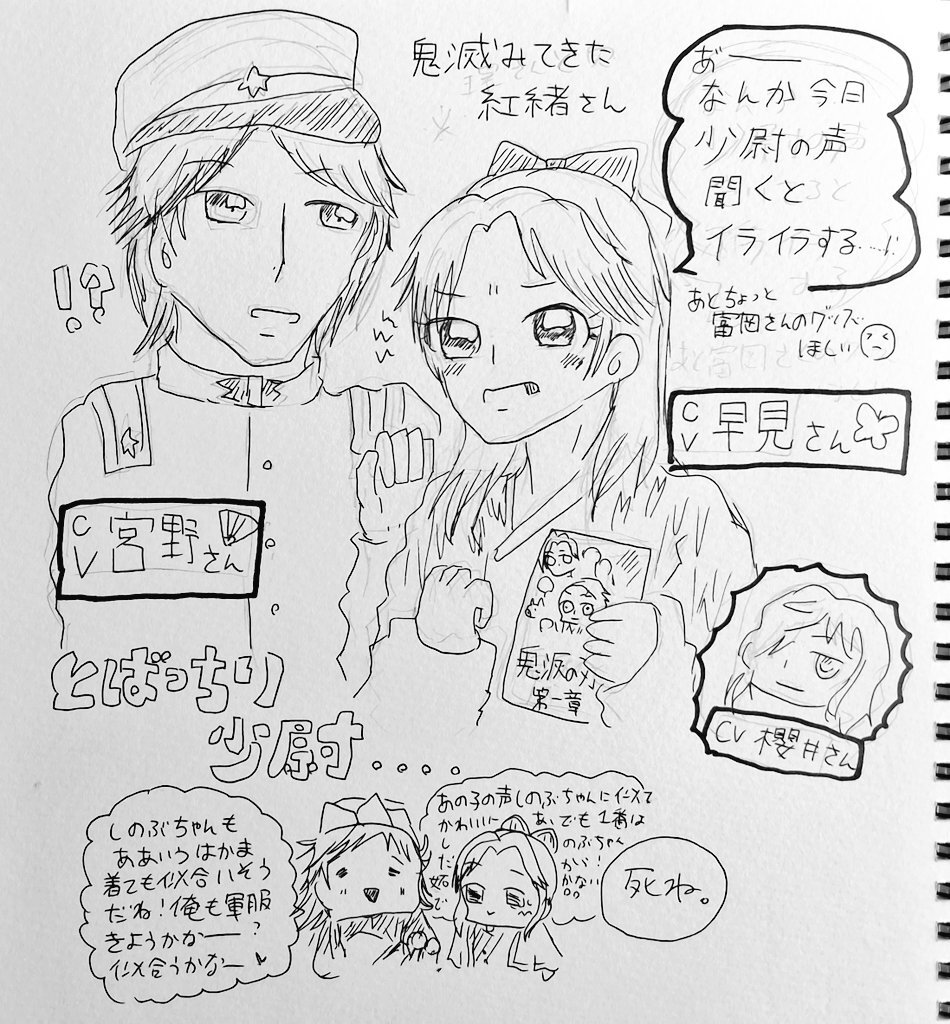 鬼滅みてきた
紅緒さん
あ゛ー
なんか今日
少尉の声
聞くと
イライラする…!
あとちょっと
富岡さんのグッズ
ほしい
!?
CV 早見さん
CV 宮野さん
鬼滅の刃
第一章
CV 櫻井さん
とばっちり
少尉....
しのぶちゃんも
ああいうはかま
着ても似合いそう
だね!俺も軍服
きようかなー?
似合うかなー
あの子の声しのぶちゃんににて
かわいいに
でも1番は
しのぶちゃん
だから!
死ね。